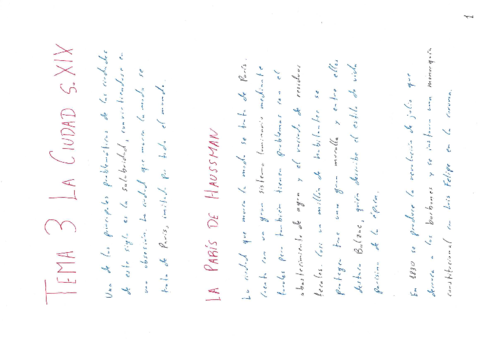 TEMA 3 LA CIUDAD S. XIX
Una de las principales problemáticas de las ciudades
de este siglo es la salubridad, convirtiéndose en
una obsesión. La ciudad que marca la moda se
trata de París, imitada por todo el mundo.
LA PARÍS DE HAUSSMAN
La ciudad que marca la moda se trata de París.
Cuenta con un gran sistema luminario mediante
farolas pero también tienen problemas con el
abastecimiento de agua y el vaciado de residuos
fecales. Casi un millón de habitantes se
protegen tras una gran muralla y entre ellos
destaca Balzac, quién describe el estilo de vida
parisino de la época.
En 1830 se produce la revolución de julio que
derroca a los borbones y se instaura una monarquía
constitucional con Luis Felipe en la corona.
1